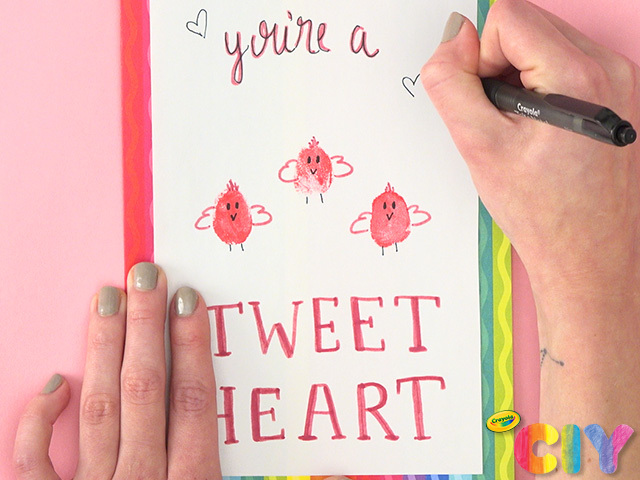 you're a
TWEET
HEART
Crayola
Crayola
CIY